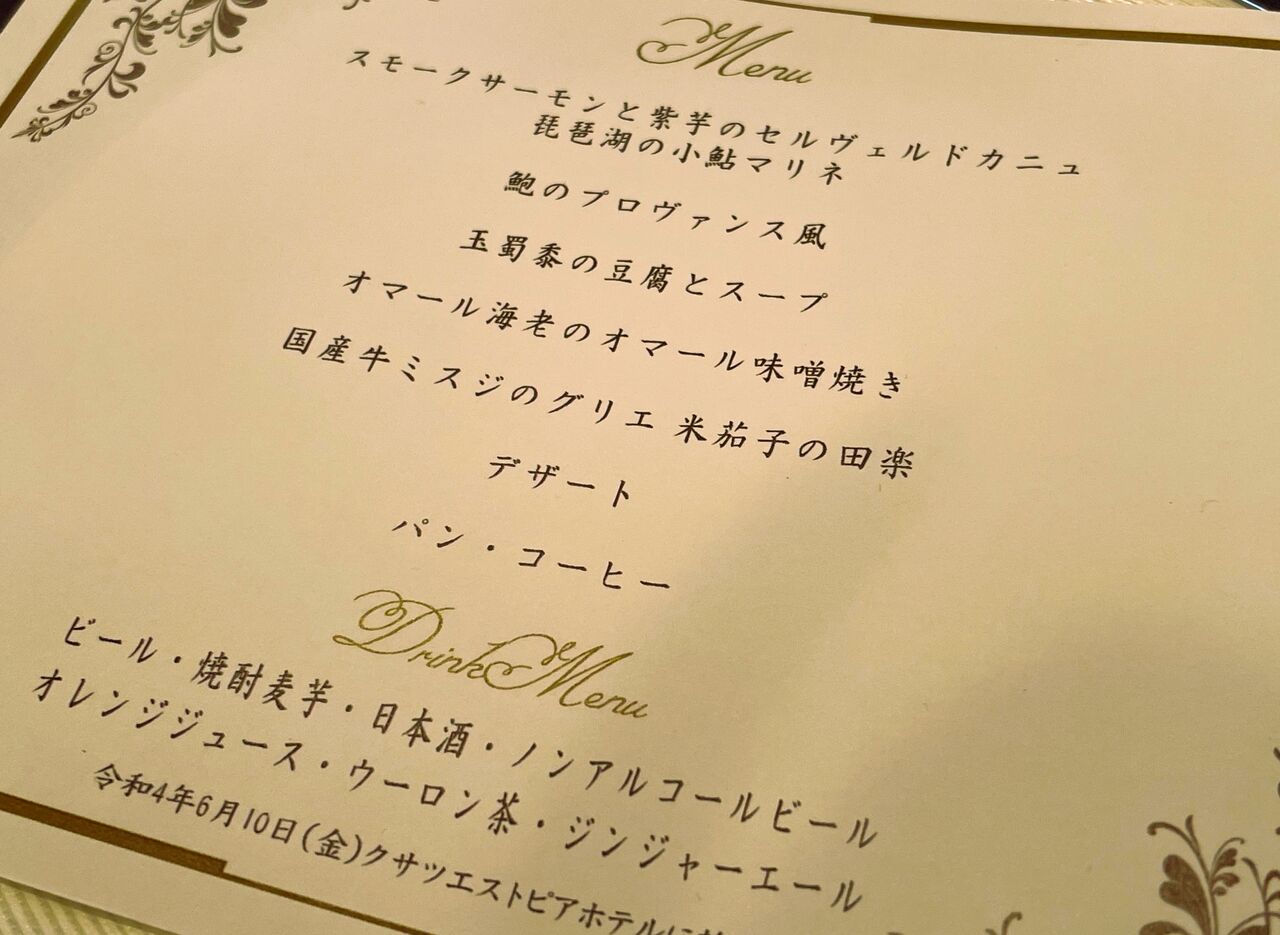 Menu
スモークサーモンと紫芋のセルヴェルドカニュ
琵琶湖の小鮎マリネ
鮑のプロヴァンス風
玉蜀黍の豆腐とスープ
オマール海老のオマール味噌焼き
国産牛ミスジのグリエ 米茄子の田楽
デザート
パン・コーヒー
Drink Menu
ビール・焼酎麦芋・日本酒・ノンアルコールビール
オレンジジュース・ウーロン茶・ジンジャーエール
令和4年6月10日(金)クサツエストピアホテルに